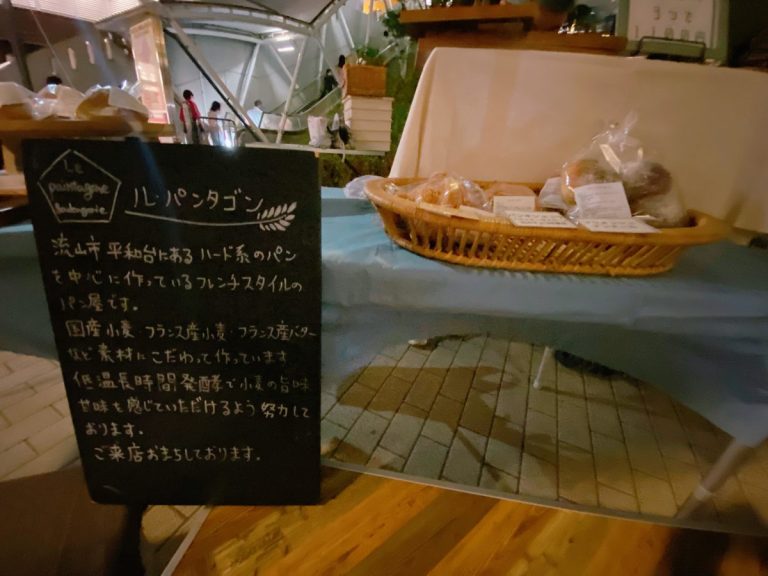 Le
paintagone
Boulangerie
ル・パンタゴン
流山市 平和台にあるハード系のパン
を中心に作っているフレンチスタイルの
パン屋です。
国産小麦・フランス産小麦・フランス産バター
など素材にこだわって作っています
低温長時間発酵で小麦の旨味
甘味を感じていただけるよう努力して
おります。
ご来店おまちしております。